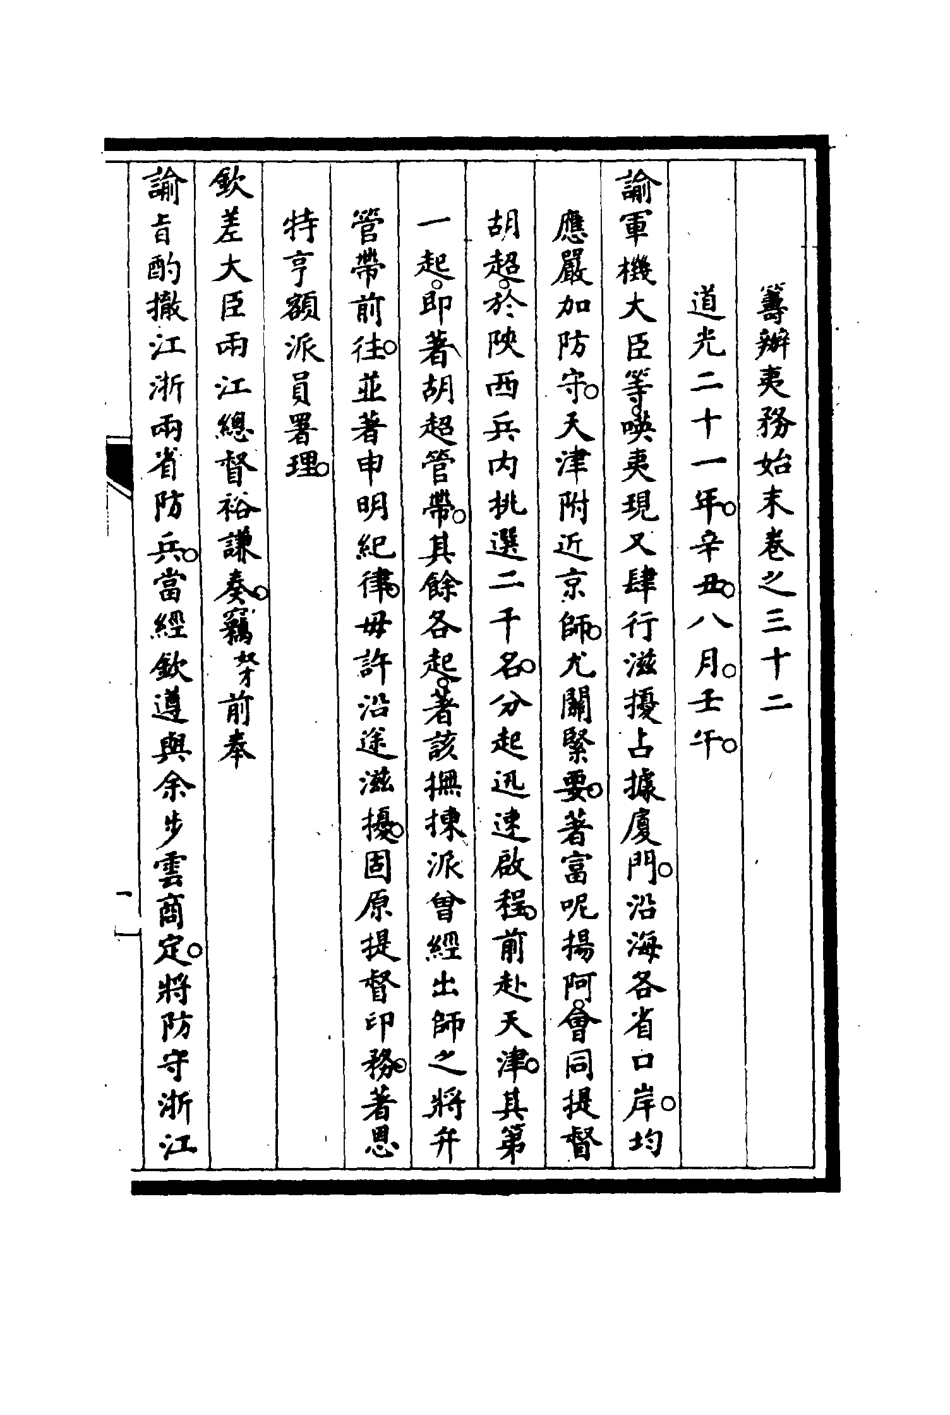 籌辦夷務始末卷之三十二
道光二十一年。辛丑。八月。壬午。
諭軍機大臣等。𠸄夷現又肆行滋擾占據廈門。沿海各省口岸。均
應嚴加防守。天津附近京師。尤關緊要。著富呢揚阿。會同提督
胡超。於陝西兵內挑選二千名。分起迅速啟程。前赴天津。其第
一起。即著胡超管帶。其餘各起。著該撫揀派曾經出師之將弁
管帶前往。並著申明紀律。毋許沿途滋擾。固原提督印務。著恩
特亨額派員署理。
欽差大臣兩江總督裕謙奏。竊奴才前奉
諭旨酌撤江浙兩省防兵。當經欽遵與余步雲商定。將防守浙江
一